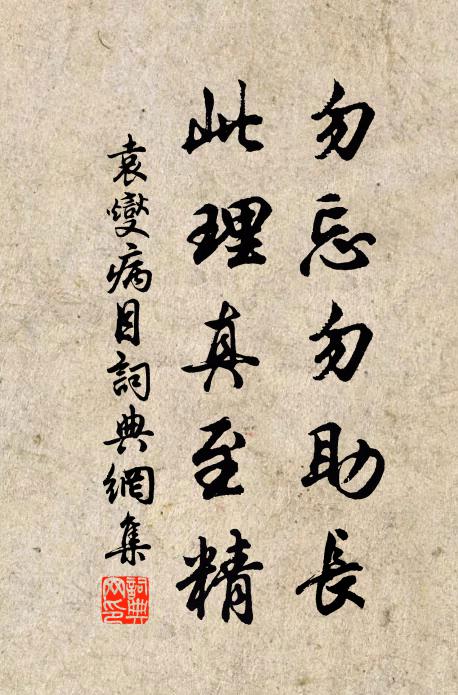 勿忘勿助長
此理真至精
袁燮病目詞典網集
詞典网印